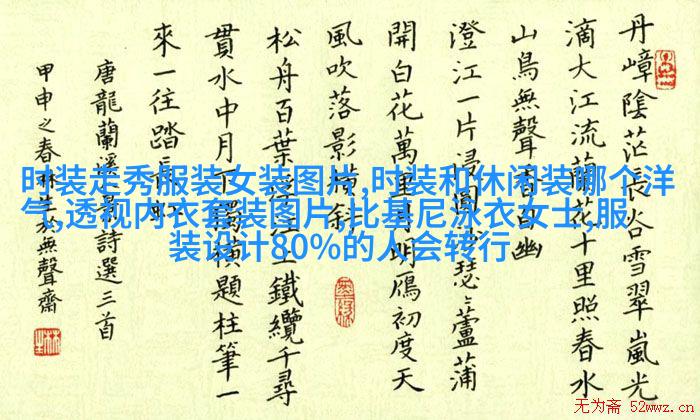 丹嶂陰茫長谷雪翠嵐光
滴大江流蘭花十里照春水
山鳥無聲香自幽
澄江一片浸圓瑟〻蘆蒲
開白花萬里月明鴈初度天
風吹落影橫斜
松舟百葉上鐵纜千尋
貫水中月下獨橫題柱筆一
來一往踏長
唐龍蘭溪詩選三首
甲申之春林於無聲齋
时装走秀服装女装图片,时装和休闲装哪个洋
气,透视内衣套装图片,比基尼泳衣女士,服
装设计80%的人会转行
无为斋 52wwz.cn